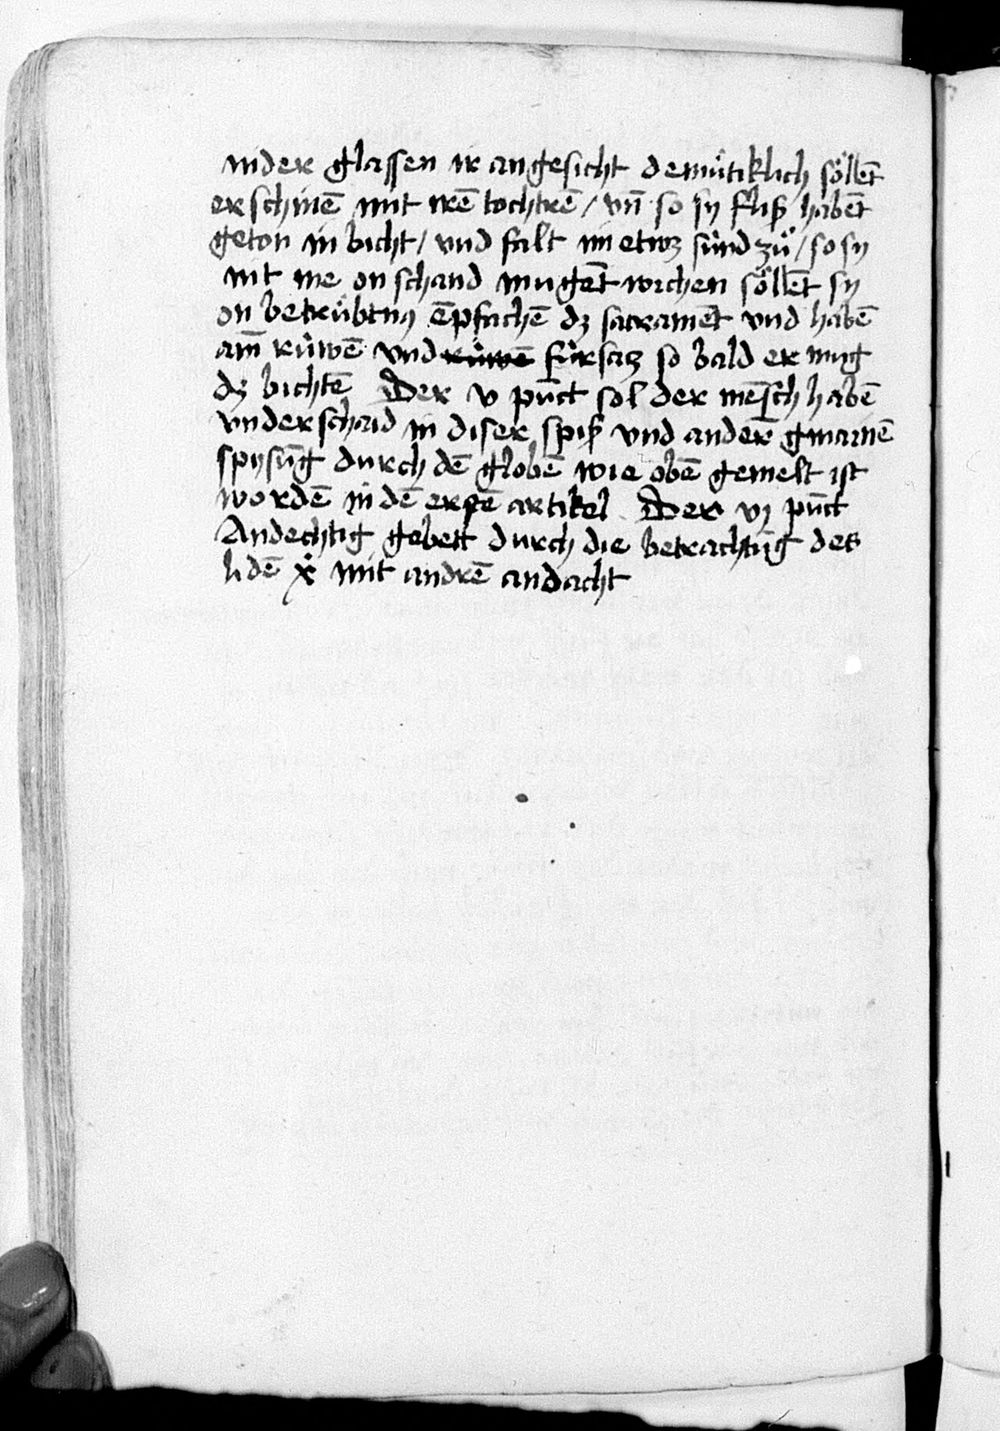 nider glassen ir angesicht demuͤtiklich soͤllēt
erschinē mit irē tochtrē / vn̄ so sy fliß habēt
geton in bicht / vnd falt in etwz sünd zuͦ / so sy
nit me on schand mugēt wichen soͤllēt sy
on betruͤbtnꝯ ēpfachē dz sacramēt vnd habē
ain̄ rüwē vnd rüwē fürsatz so bald er mug
dz bichtē Der v pūct sol der mēsch habē
vnderschaid in diser spiß vnd ander gmainē
spysūg durch dē globē wie obē gemelt ist
wordē in dē erstē artikel Der vj pūct
Andechtig gebett durch die betrachtūg des
lidē x̄ mit andrē andacht